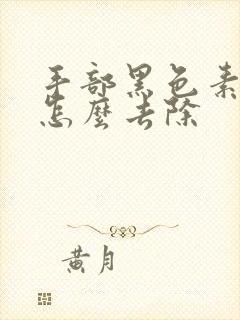 手部黑色素
怎麼去除
黄月